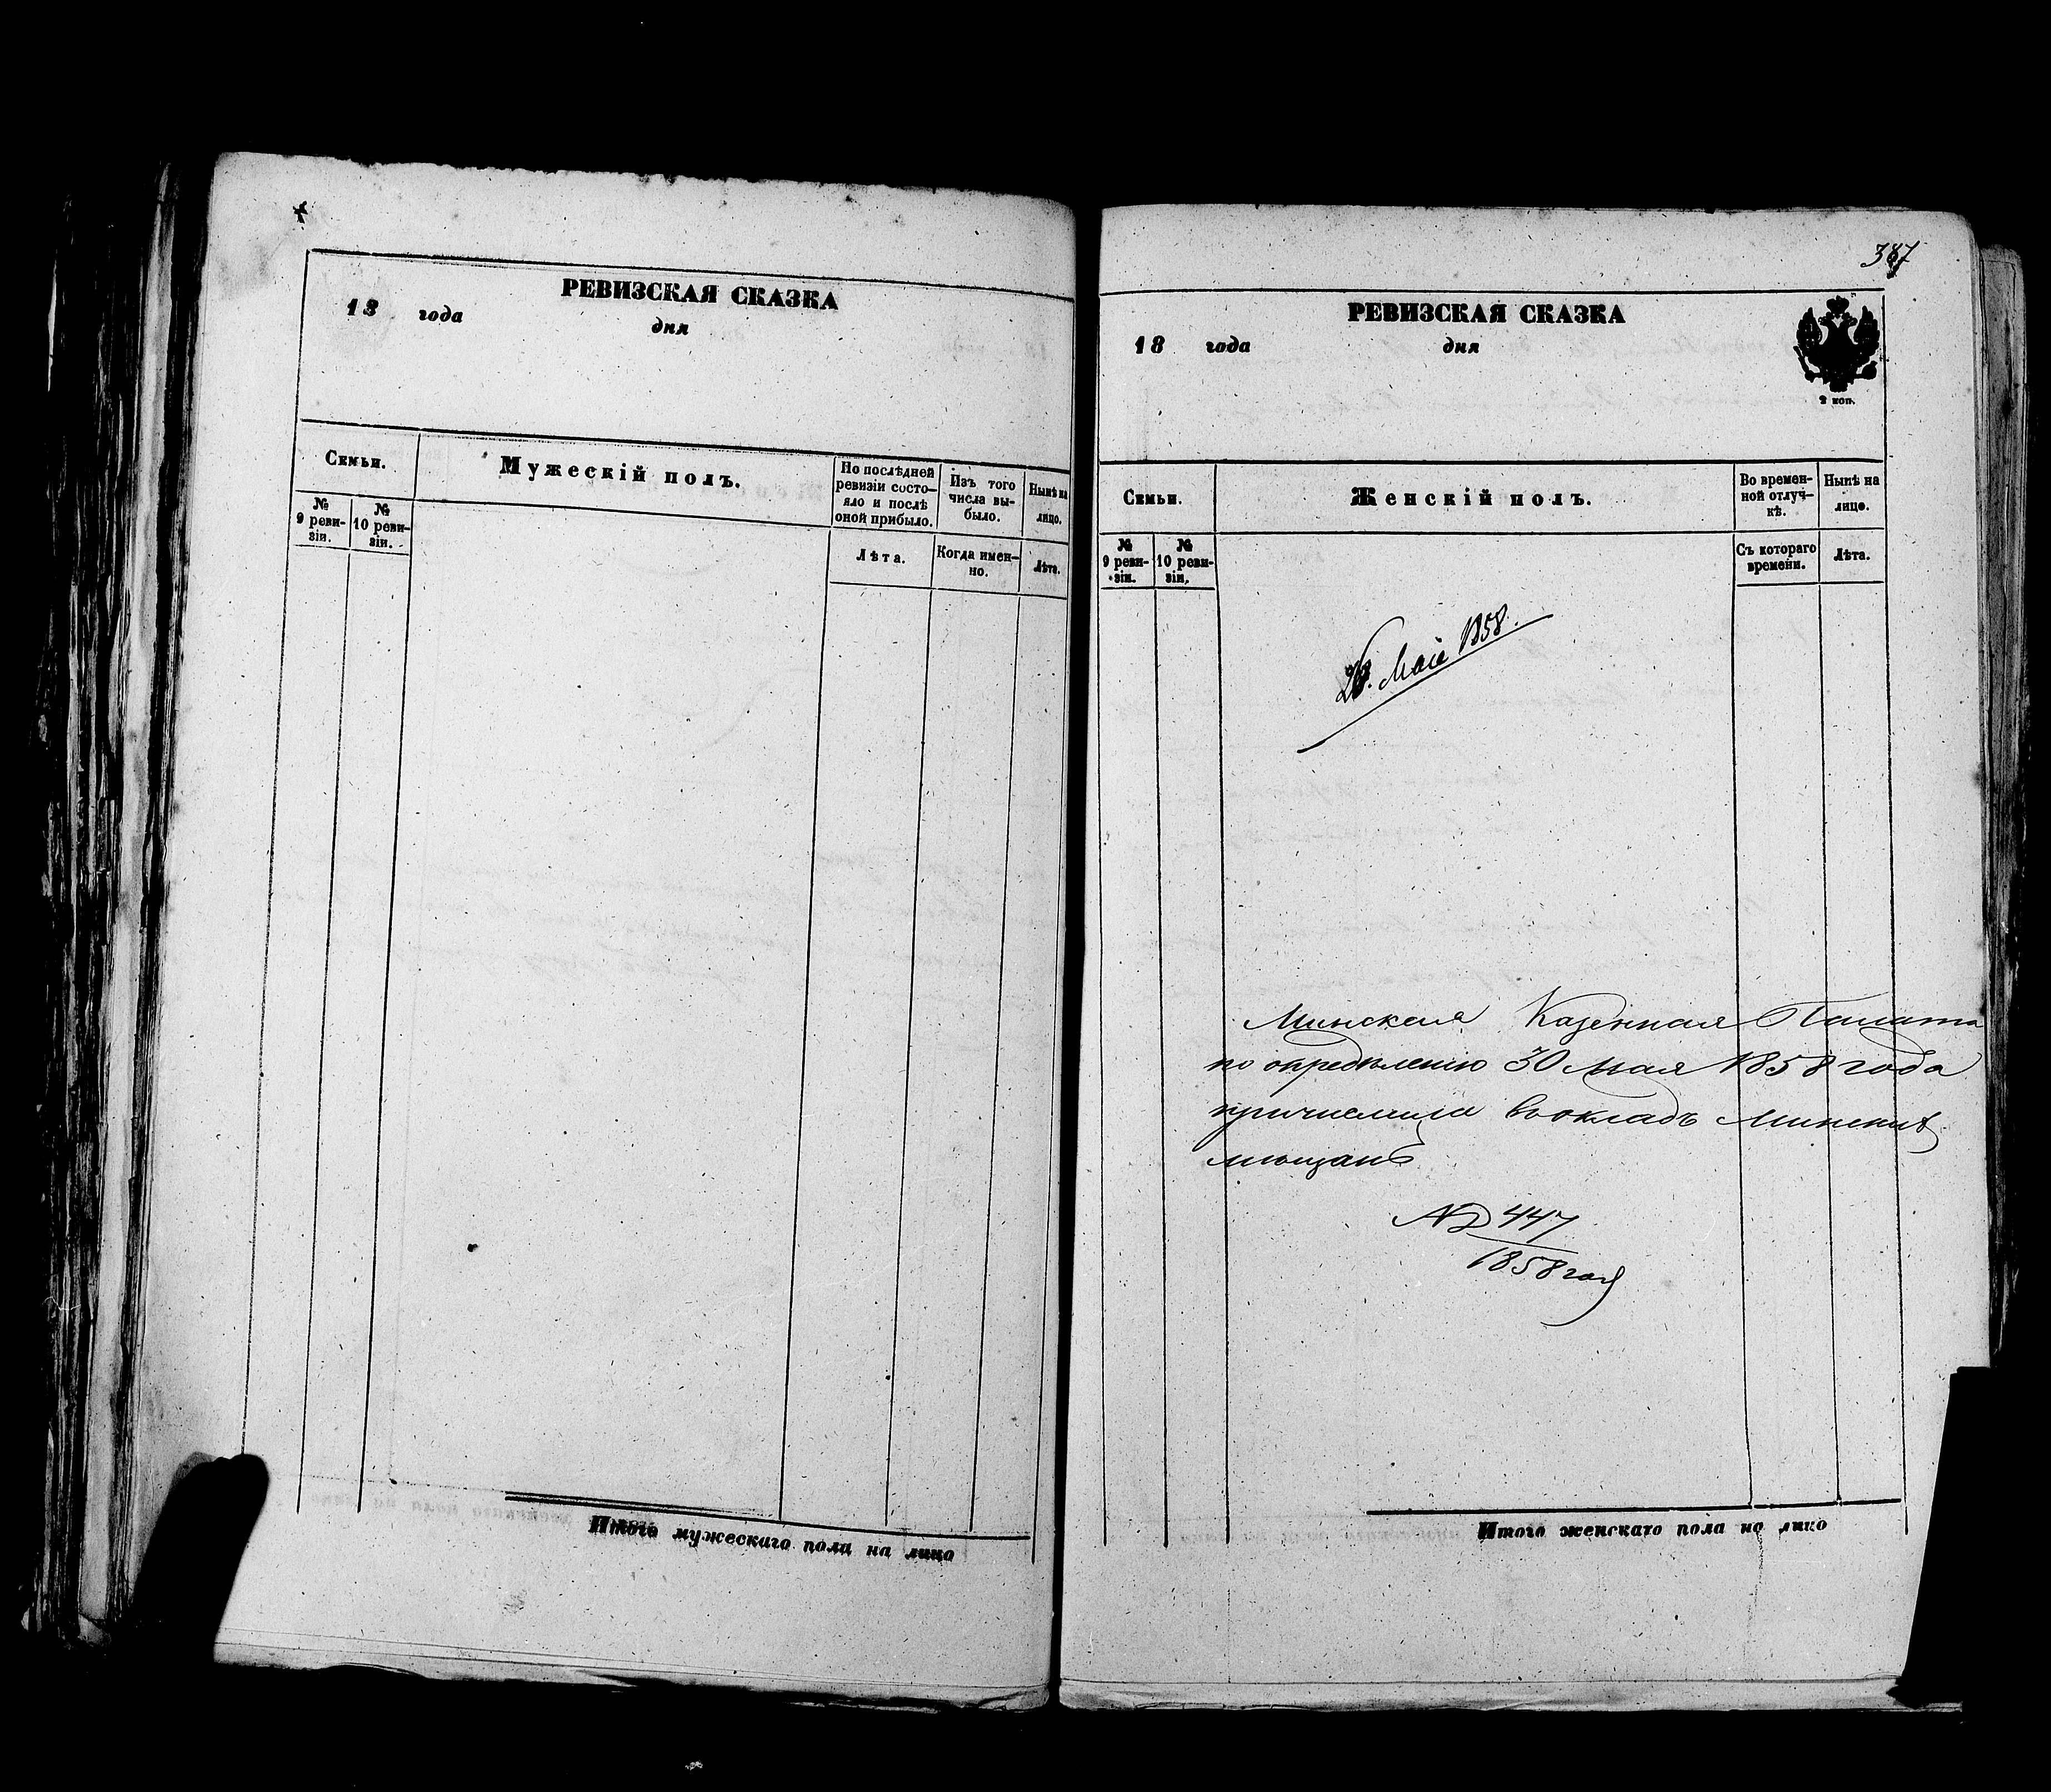 РЕВИЗСКАЯ СКАЗКА
18 года дня
Семьи.
Мужескій полъ.
По послѣдней
ревизіи состо-
яло и послѣ
оной прибыло.
Изъ того
числа вы-
было.
Нынѣ на
лицо.
№
9 реви-
зіи.
№
10 реви-
зіи.
Лѣта.
Когда имен-
но.
Лѣта.
Итого мужескаго пола на лицо
387
РЕВИЗСКАЯ СКАЗКА
18 года дня
2 коп.
Семьи.
Женскій полъ.
Во времен-
ной отлуч-
кѣ.
Нынѣ на
лицо.
№
9 реви-
зіи.
№
10 реви-
зіи.
Съ котораго
времени.
Лѣта.
Мая 1858.
Минская Казенная Палата
по опредѣленію 30 Мая 1858 года
причислила въ окладъ Минскихъ
мѣщанъ
№ 447
1858 года
Итого женскаго пола на лицо